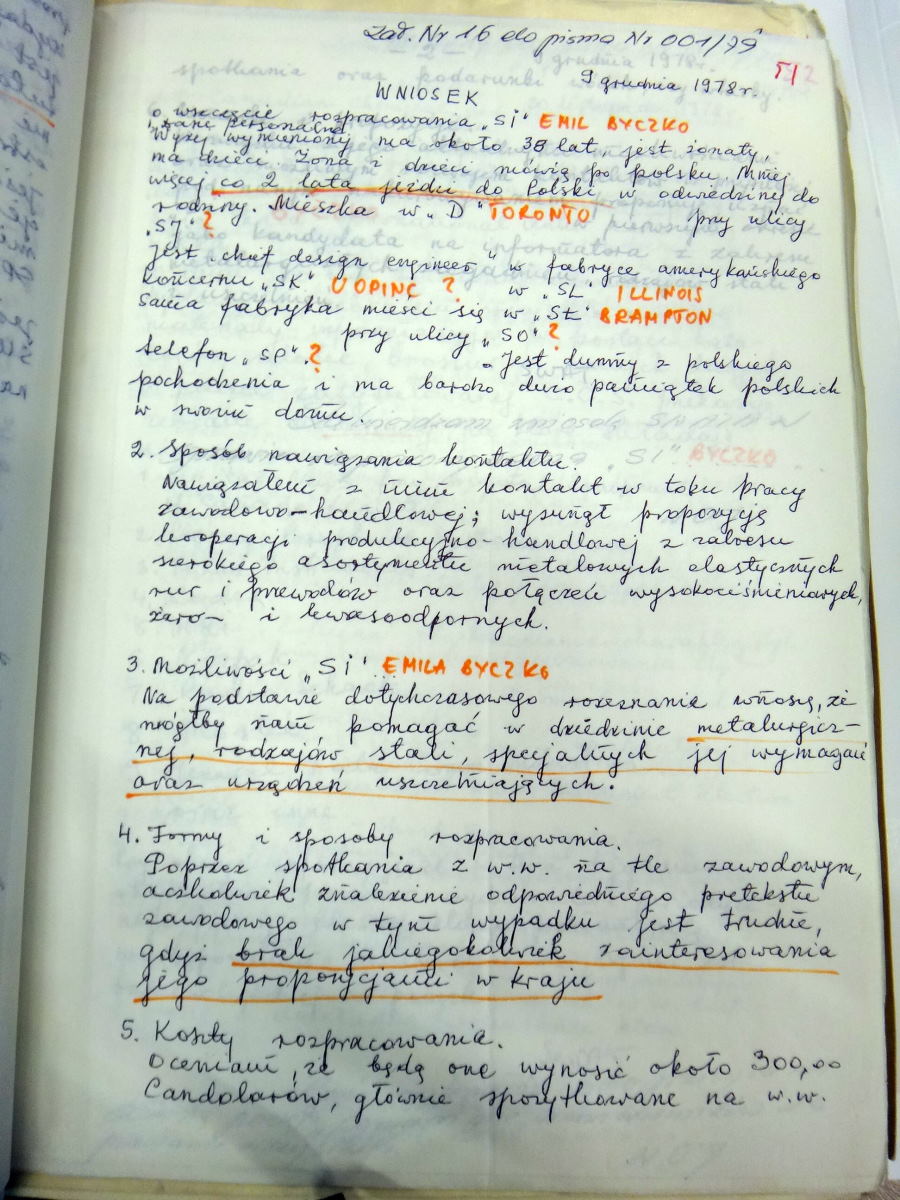 Zał. Nr 16 do pisma Nr 001/79
9 grudnia 1978r.
WNIOSEK
o wszczęcie rozpracowania „SI" EMIL BYCZKO
1. Dane personalne
Wyżej wymieniony ma około 38 lat, jest żonaty,
ma dzieci. Żona i dzieci mówią po polsku. Mniej
więcej co 2 lata jeździ do Polski w odwiedziny do
rodziny. Mieszka w „D" TORONTO przy ulicy
„SJ" ?
Jest „chief design engineer" w fabryce amerykańskiego
koncernu „SK" ? w „SL" ILLINOIS
Sama fabryka mieści się w „SŁ" BRAMPTON
przy ulicy „SO" ?
telefon „SP" ? . Jest dumny z polskiego
pochodzenia i ma bardzo dużo pamiątek polskich
w swoim domu.
2. Sposób nawiązania kontaktu.
Nawiązałem z nim kontakt w toku pracy
zawodowo-handlowej; wysunął propozycję
kooperacji produkcyjno-handlowej z zakresu
szerokiego asortymentu metalowych elastycznych
rur i przewodów oraz połączeń wysokociśnieniowych,
żaro- i kwasoodpornych.
3. Możliwości „SI" EMILA BYCZKO
Na podstawie dotychczasowego rozeznania wnoszę, że
mógłby nam pomagać w dziedzinie metalurgicz-
nej, rodzajów stali, specjalnych jej wymagań
oraz urządzeń uszczelniających.
4. Formy i sposoby rozpracowania.
Poprzez spotkania z w.w. na tle zawodowym,
aczkolwiek znalezienie odpowiedniego pretekstu
zawodowego w tym wypadku jest trudne,
gdyż brak jakiegokolwiek zainteresowania
jego propozycjami w kraju
5. Koszty rozpracowania.
Oceniam, że będą one wynosić około 300,00
Candolarów, głównie spożytkowane na w.w.